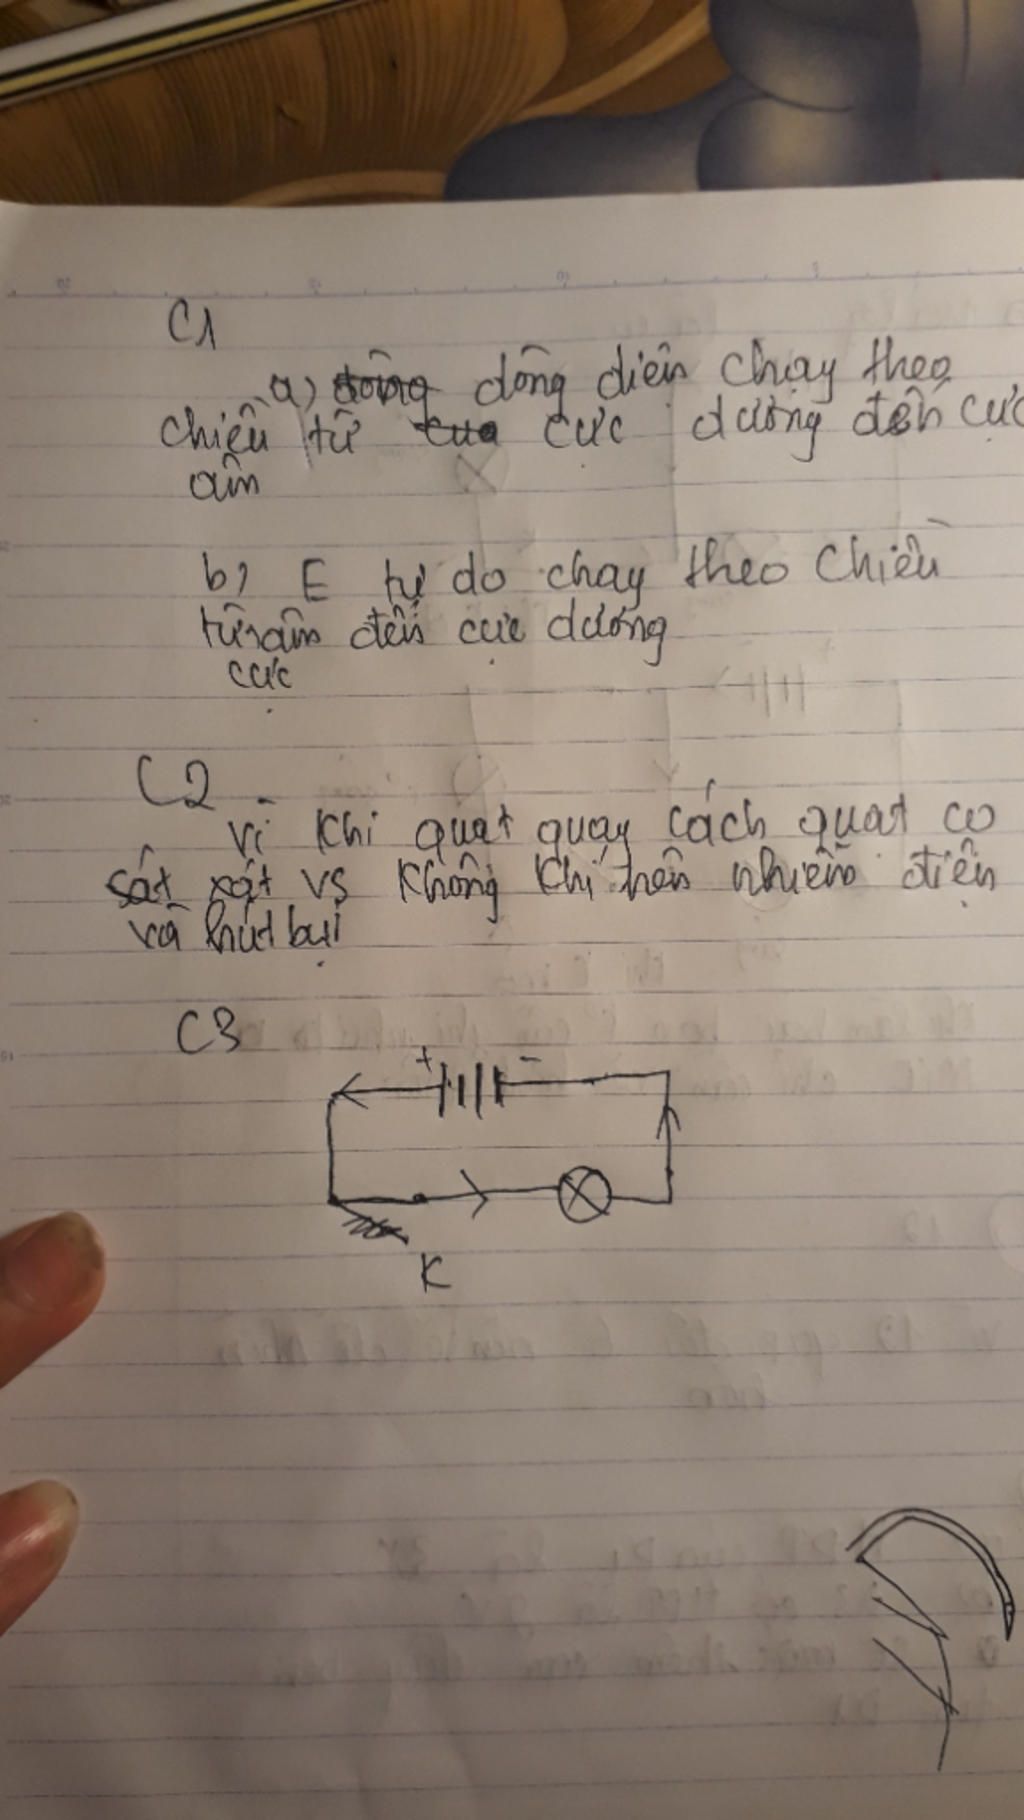 C1
a) dòng diên chạy theo
chiều từ cực dương đến cực
âm
b) E tự do chay theo chiều
từ âm đến cực dương
cực
C2
Vì khi quạt quay cách quạt co
sát xát vs không khí nên nhiễm điện
và hút bụi
C3
+ -
K